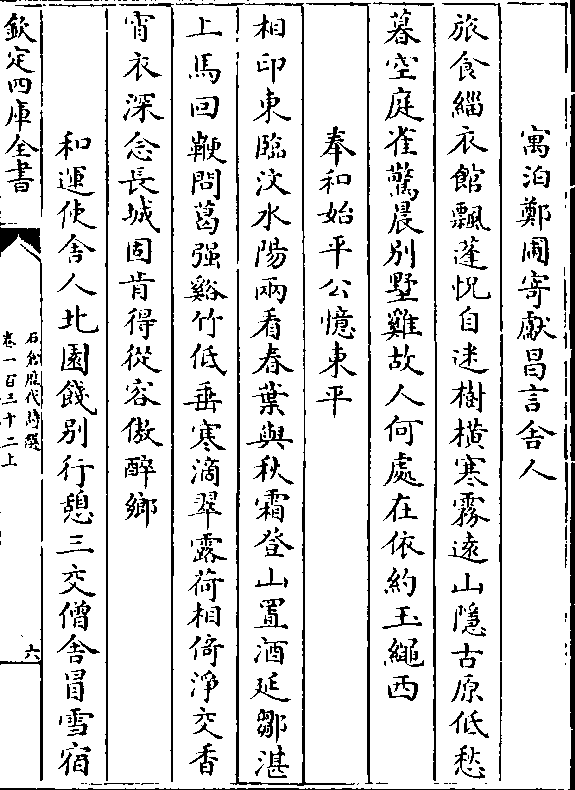 寓泊鄭圃寄獻昌言舍人
旅食緇衣館飄蓬怳自迷樹橫寒霧逺山隱古原低愁
暮空庭雀驚晨别墅雞故人何處在依約玉繩西
奉和始平公憶東平
相印東臨汶水陽兩看春葉與秋霜登山置酒延鄒湛
上馬回鞭問葛强谿竹低垂寒滴翠露荷相倚淨交香
宵衣深念長城固肯得從容傲醉鄉
和運使舍人北園餞别行憩三交僧舍冒雪宿
欽定四庫全書
石倉歴代詩選
卷一百三十二上
六